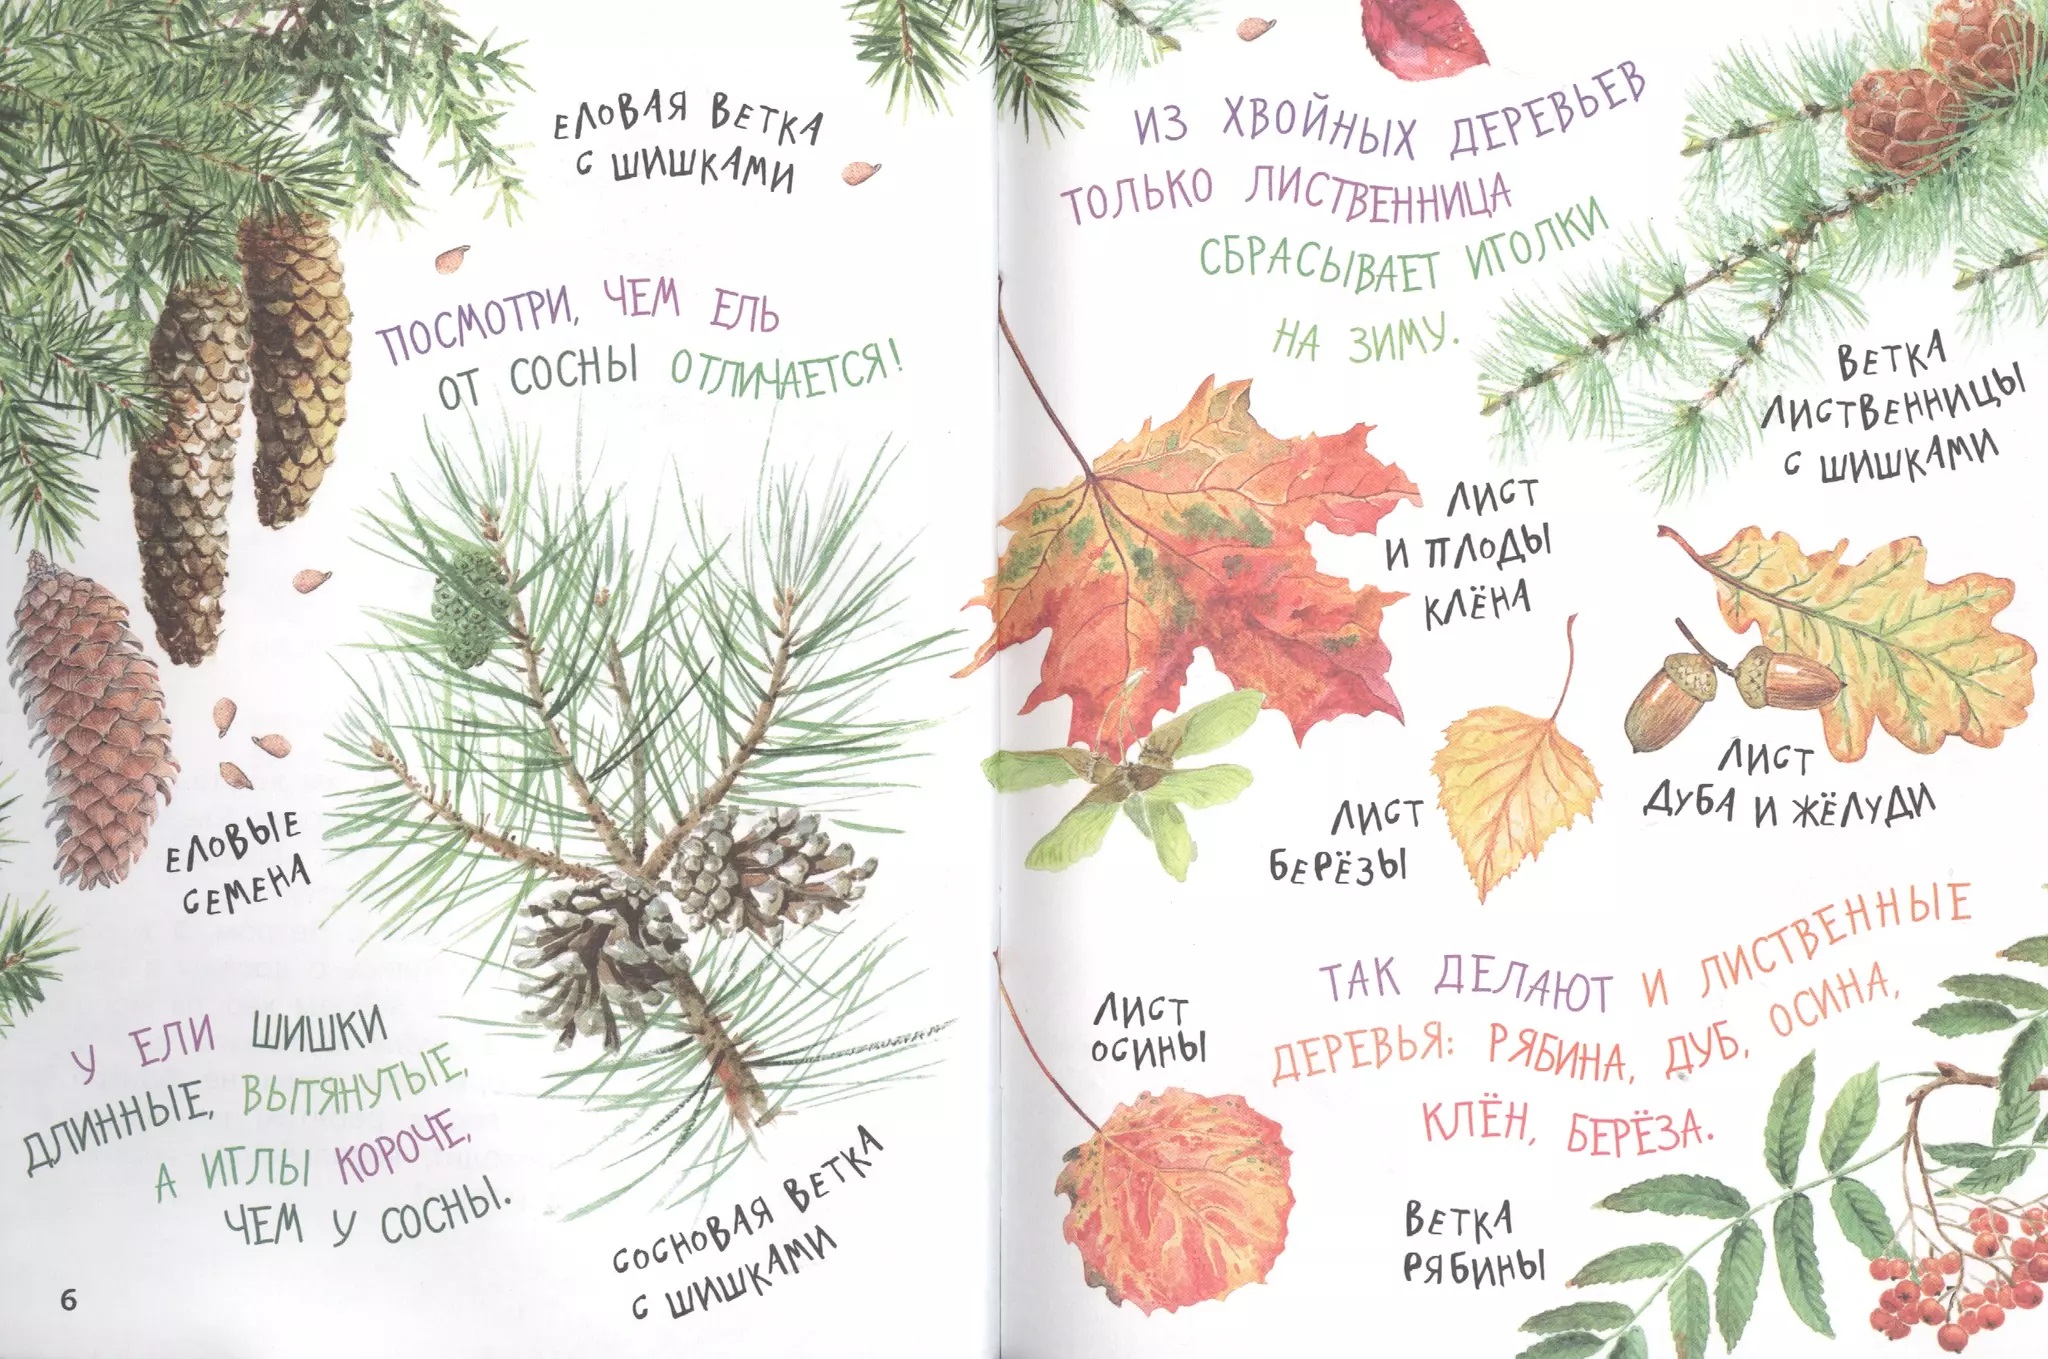 ЕЛОВАЯ ВЕТКА
С ШИШКАМИ
ПОСМОТРИ, ЧЕМ ЕЛЬ
ОТ СОСНЫ ОТЛИЧАЕТСЯ!
ЕЛОВЫЕ
СЕМЕНА
У ЕЛИ ШИШКИ
ДЛИННЫЕ, ВЫТЯНУТЫЕ,
А ИГЛЫ КОРОЧЕ,
ЧЕМ У СОСНЫ.
СОСНОВАЯ ВЕТКА
С ШИШКАМИ
6
ИЗ ХВОЙНЫХ ДЕРЕВЬЕВ
ТОЛЬКО ЛИСТВЕННИЦА
СБРАСЫВАЕТ ИГОЛКИ
НА ЗИМУ.
ВЕТКА
ЛИСТВЕННИЦЫ
С ШИШКАМИ
ЛИСТ
И ПЛОДЫ
КЛЁНА
ЛИСТ
ДУБА И ЖЁЛУДИ
ЛИСТ
БЕРЁЗЫ
ТАК ДЕЛАЮТ И ЛИСТВЕННЫЕ
ДЕРЕВЬЯ: РЯБИНА, ДУБ, ОСИНА,
КЛЁН, БЕРЁЗА.
ЛИСТ
ОСИНЫ
ВЕТКА
РЯБИНЫ